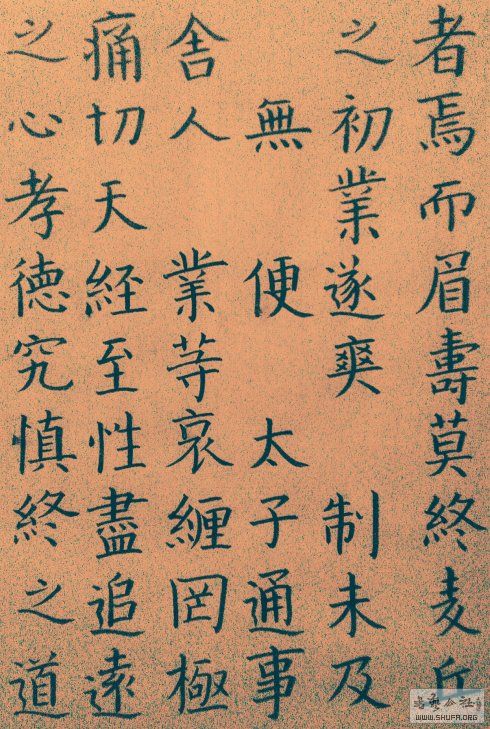 者焉而眉壽莫終麦丘
之初業遂爽 制未及
無 便 太子通事
舎人 業等哀纒罔極
痛切天経至性盡追遠
之心孝徳究慎終之道
WWW.SHUFA.ORG